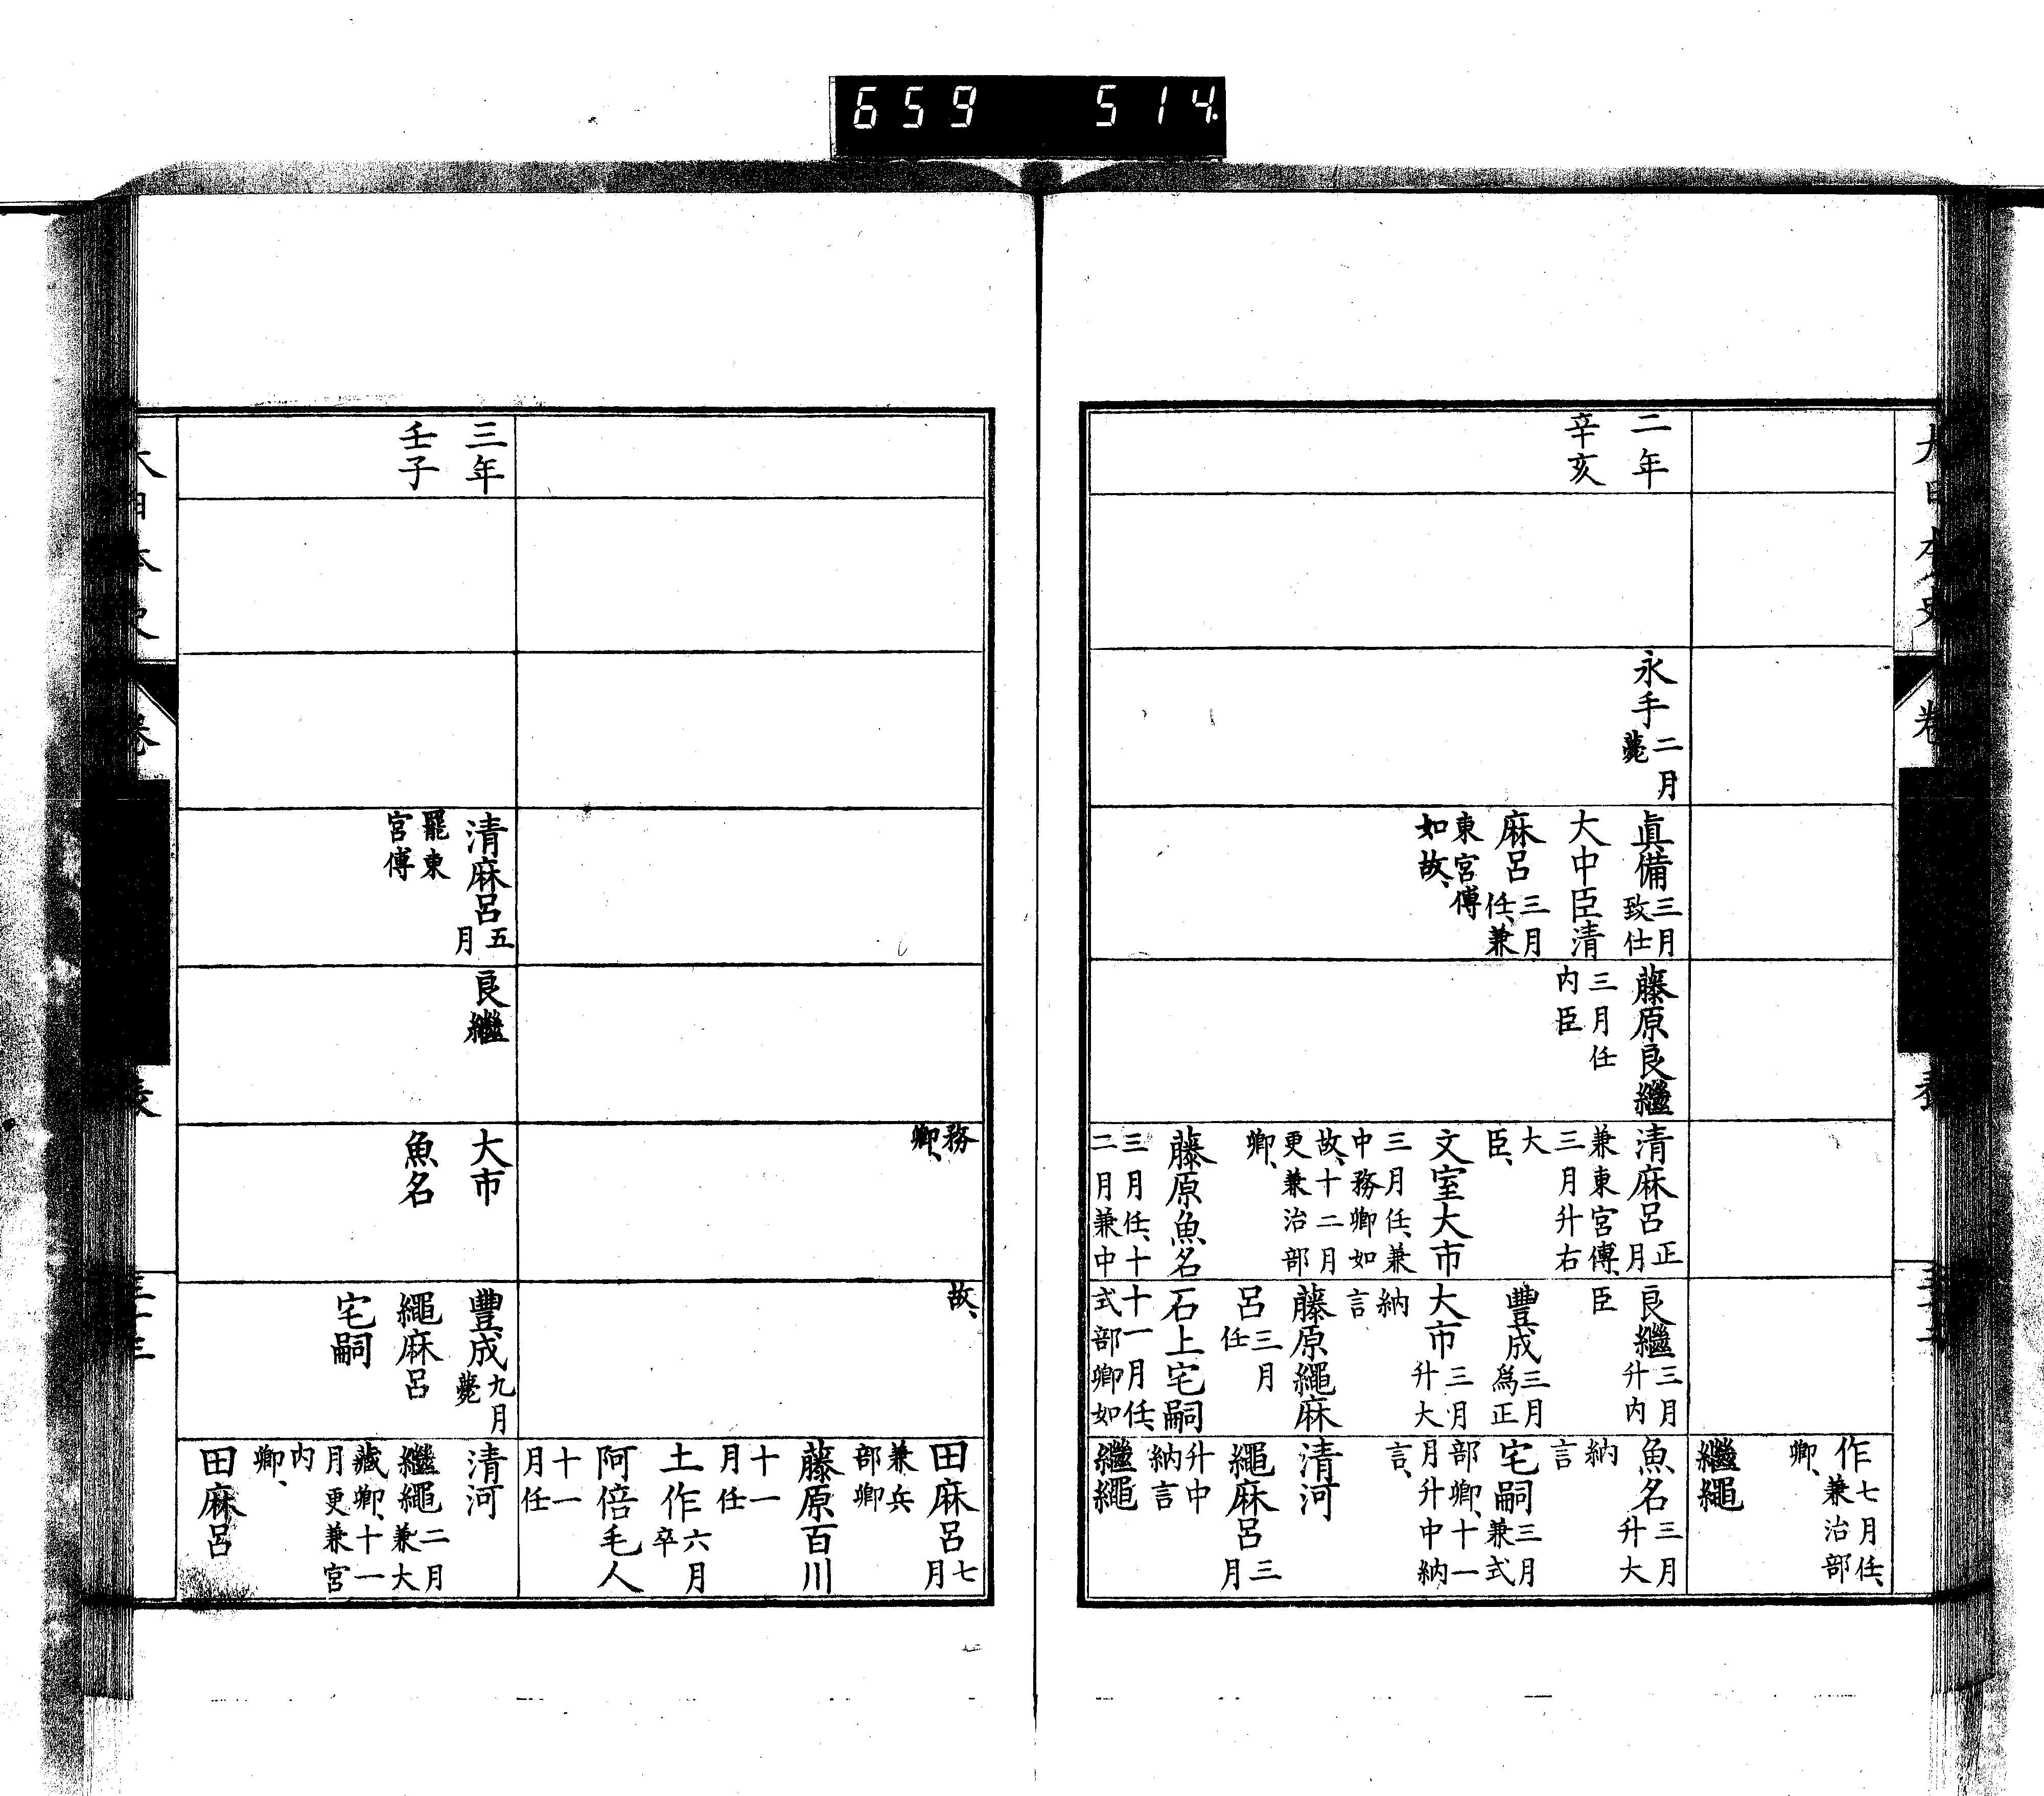 659 514
大日本史
卷
表
作七月任、
兼治部
卿、
繼繩
二年
辛亥
永手二月
薨
眞備三月
致仕
大中臣清
麻呂三月
任、兼
東宮傅
如故、
藤原良繼
三月任
内臣
清麻呂正
月
兼東宮傅、
三月升右
大
臣、
文室大市
三月任、兼
中務卿如
故、十二月
更兼治部
卿、
藤原魚名
三月任、十
二月兼中
良繼三月
升内
臣
豐成三月
爲正
大市三月
升大
納
言
藤原繩麻
呂三月
任
石上宅嗣
十一月任、
式部卿如
魚名三月
升大
納
言
宅嗣三月
兼式
部卿、十一
月升中納
言、
清河
繩麻呂三
月
升中
納言
繼繩
務
卿、
故、
田麻呂七
月
兼兵
部卿
藤原百川
十一
月任
土作六月
卒
阿倍毛人
十一
月任
三年
壬子
清麻呂五
月
罷東
宮傅
良繼
大市
魚名
豐成九月
薨
繩麻呂
宅嗣
清河
繼繩二月
兼大
藏卿、十一
月更兼宮
内
卿、
田麻呂
大日本史
卷
表
三十三